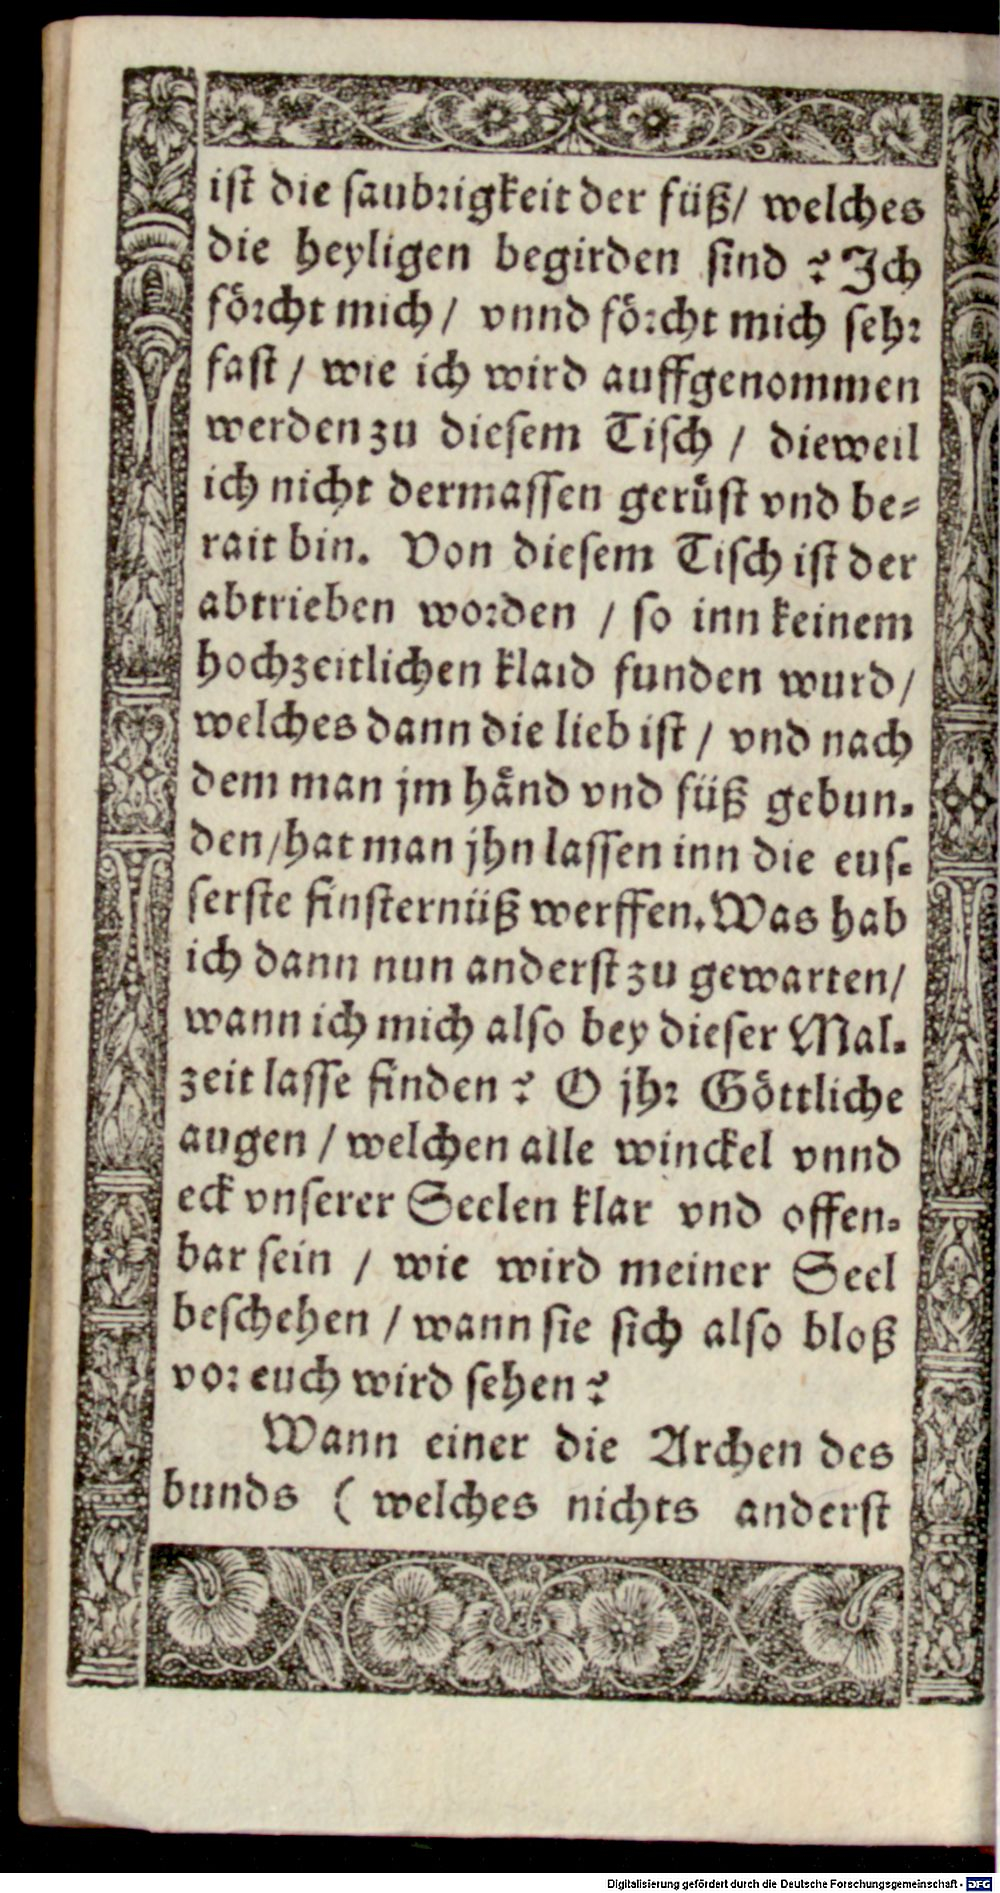 ist die saubrigkeit der füß/ welches
die heyligen begirden sind? Ich
förcht mich/ vnnd förcht mich sehr
fast/ wie ich wird auffgenommen
werden zu diesem Tisch/ dieweil
ich nicht dermassen gerüst vnd be-
rait bin. Von diesem Tisch ist der
abtrieben worden/ so inn keinem
hochzeitlichen klaid funden wurd/
welches dann die lieb ist/ vnd nach
dem man jm hånd vnd füß gebun-
den/hat man jhn lassen inn die eus-
serste finsternüß werffen. Was hab
ich dann nun anderst zu gewarten/
wann ich mich also bey dieser Mal-
zeit lasse finden? O jhr Göttliche
augen/ welchen alle winckel vnnd
eck vnserer Seelen klar vnd offen-
bar sein/ wie wird meiner Seel
beschehen/ wann sie sich also bloß
vor euch wird sehen?
Wann einer die Archen des
bunds (welches nichts anderst
Digitalisierung gefördert durch die Deutsche Forschungsgemeinschaft - DFG